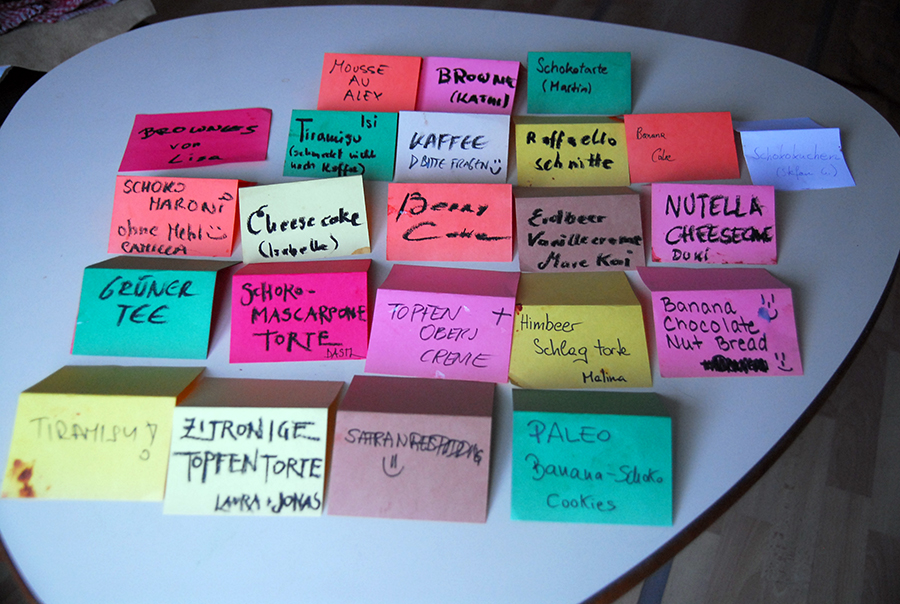 MOUSSE
AU
ALEX
BROWNIE
(KATHI)
Schokotarte
(Martin)
BROWNEES
von
Lisa
Isi
Tiramigu
(schmeckt nicht
nach Kaffee)
KAFFEE
BITTE FRAGEN
Raffaello
schnitte
Banana
Cake
Schokokuchen
SCHOKO
MARONI
ohne Mehl
CAMILLA
Cheesecake
(Isabelle)
Berry
Cake
Erdbeer
Vanillecreme
Marc Kai
NUTELLA
CHEESECAKE
DUKI
GRÜNER
TEE
SCHOKO-
MASCARPONE
TORTE
BASTI
TOPFEN +
OBERS
CREME
Himbeer
Schlag torte
Malina
Banana
Chocolate
Nut Bread
TIRAMISU!
ZITRONIGE
TOPFENTORTE
LAURA + JONAS
SAFRANREISPUDDING
PALEO
Banana-Schoko
Cookies